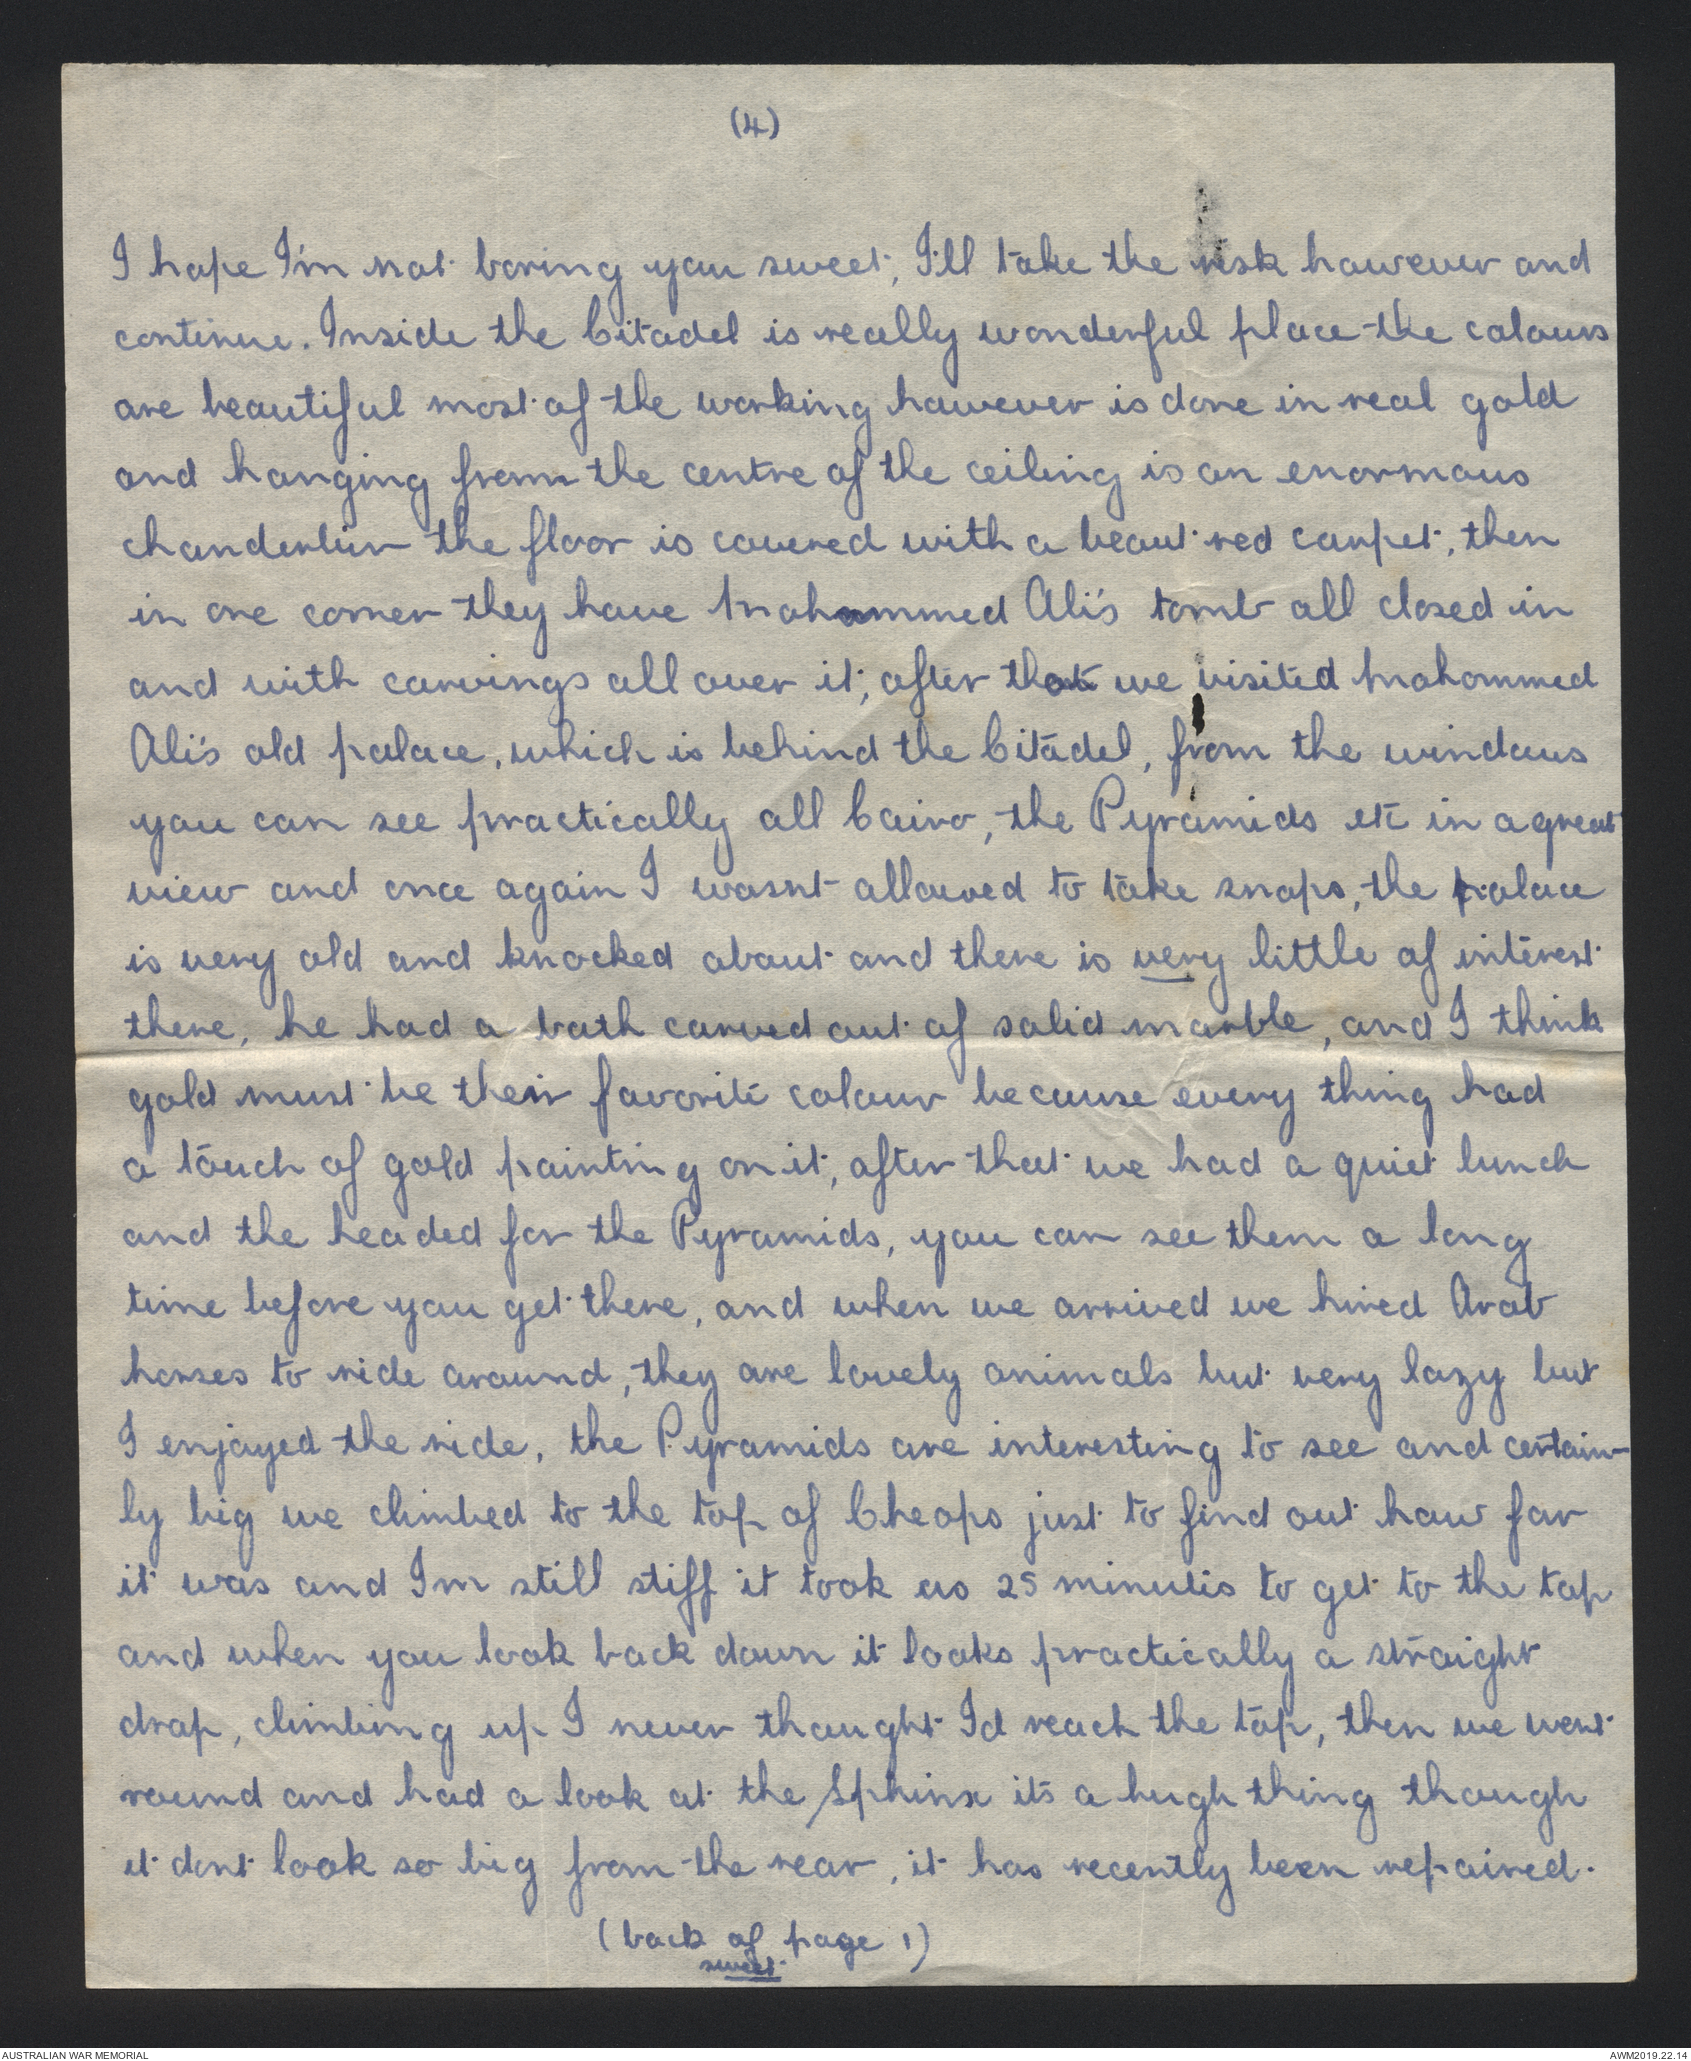 (4)
I hope I'm not boring you sweet, I'll take the risk however and
continue. Inside the Citadel is really wonderful place the colours
are beautiful most of the working however is done in real gold
and hanging from the centre of the ceiling is an enormous
chanderlier the floor is covered with a beaut red carpet, then
in one corner they have Mohammed Ali's tomb all closed in
and with carvings all over it, after that we visited Mohommed
Ali's old palace, which is behind the Citadel, from the windows
you can see practically all Cairo, the Pyramids etc in a great
view and once again I wasnt allowed to take snaps, the palace
is very old and knocked about and there is very little of interest
there, he had a bath carved out of solid marble, and I think
gold must be their favorite colour because every thing had
a touch of gold painting on it, after that we had a quiet lunch
and the headed for the Pyramids, you can see them a long
time before you get there, and when we arrived we hired Arab
horses to ride around, they are lovely animals but very lazy but
I enjoyed the ride, the Pyramids are interesting to see and certain-
ly big we climbed to the top of Cheops just to find out how far
it was and I'm still stiff it took us 25 minutes to get to the top
and when you look back down it looks practically a straight
drop, climbing up I never thought I'd reach the top, then we went
round and had a look at the Sphinx its a hugh thing though
it dont look so big from the rear, it has recently been repaired.
(back of page 1)
sweet
AUSTRALIAN WAR MEMORIAL
AWM2019.22.14